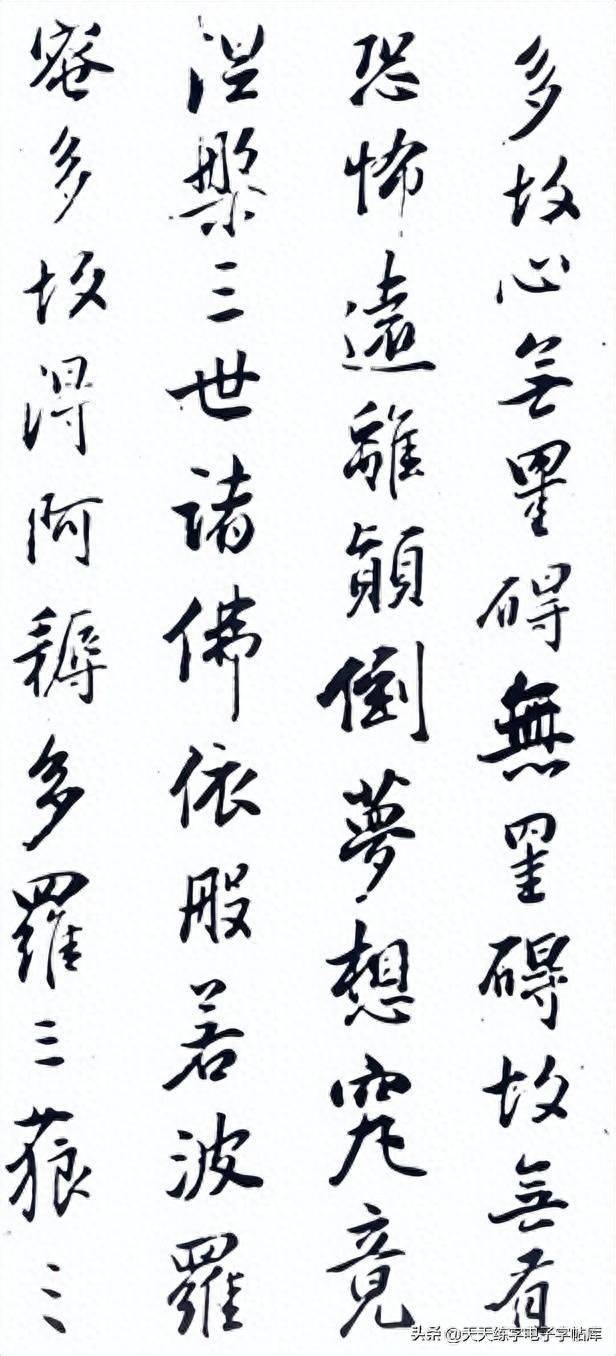 多故心無罣碍無罣碍故無有
恐怖遠離顛倒夢想究竟
涅槃三世諸佛依般若波羅
蜜多故得阿耨多羅三藐三
头条 @天天练字电子字帖库